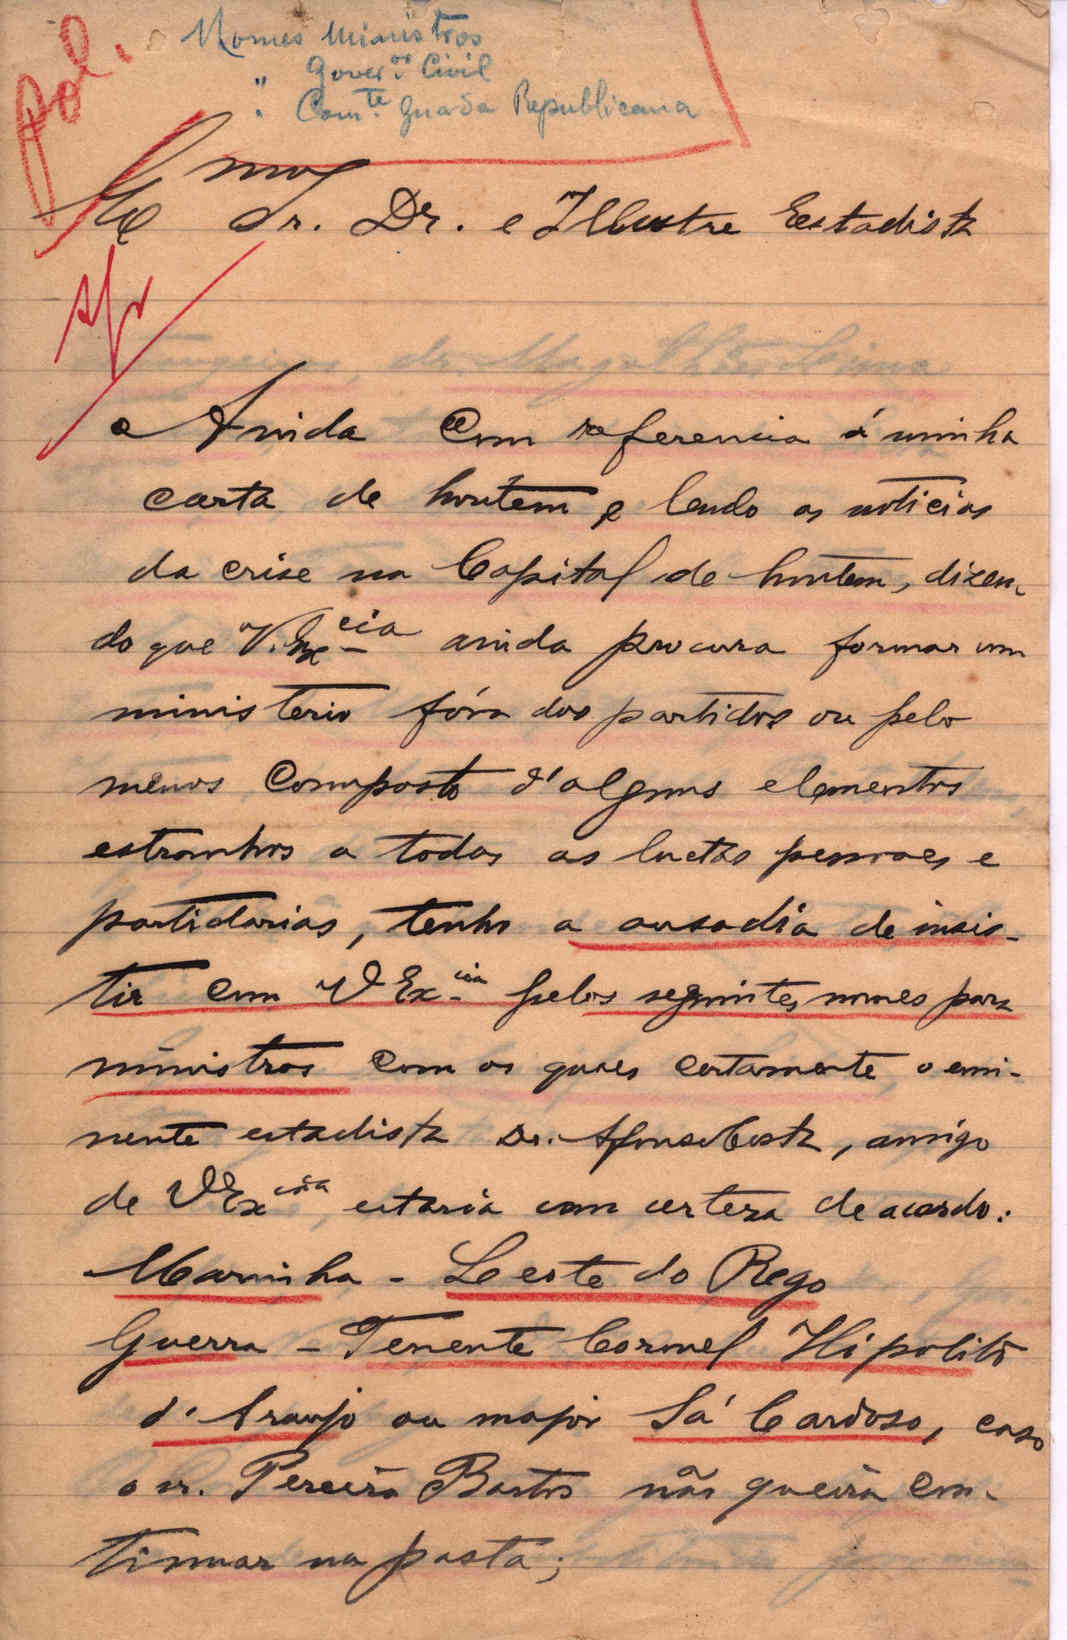 Pol.
Nomes Ministros
" Gover.or Civil
" Com.te Guarda Republicana
Exmo Sr. Dr. e Illustre Estadista
Ainda com referencia á minha
carta de hontem e lendo as noticias
da crise na Capital de hontem, dizen-
do que V. Excia ainda procura formar um
ministerio fóra dos partidos ou pelo
menos composto d'alguns elementos
estranhos a todas as luctas pessoaes e
partidarias, tenho a ousadia de insis-
tir com V Excia pelos seguintes nomes para
ministros com os quaes certamente o emi-
nente estadista Dr. Afonso Costa, amigo
de V Excia, estaria com certeza de acordo:
Marinha - Leote do Rego
Guerra - Tenente Coronel Hipolito
d'Araujo ou major Sá Cardoso, caso
o sr. Pereira Bastos não queira con-
tinuar na pasta;